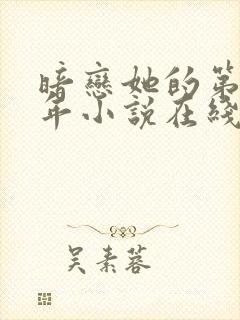 暗戀她的第
年小說在綫
吴素蓉